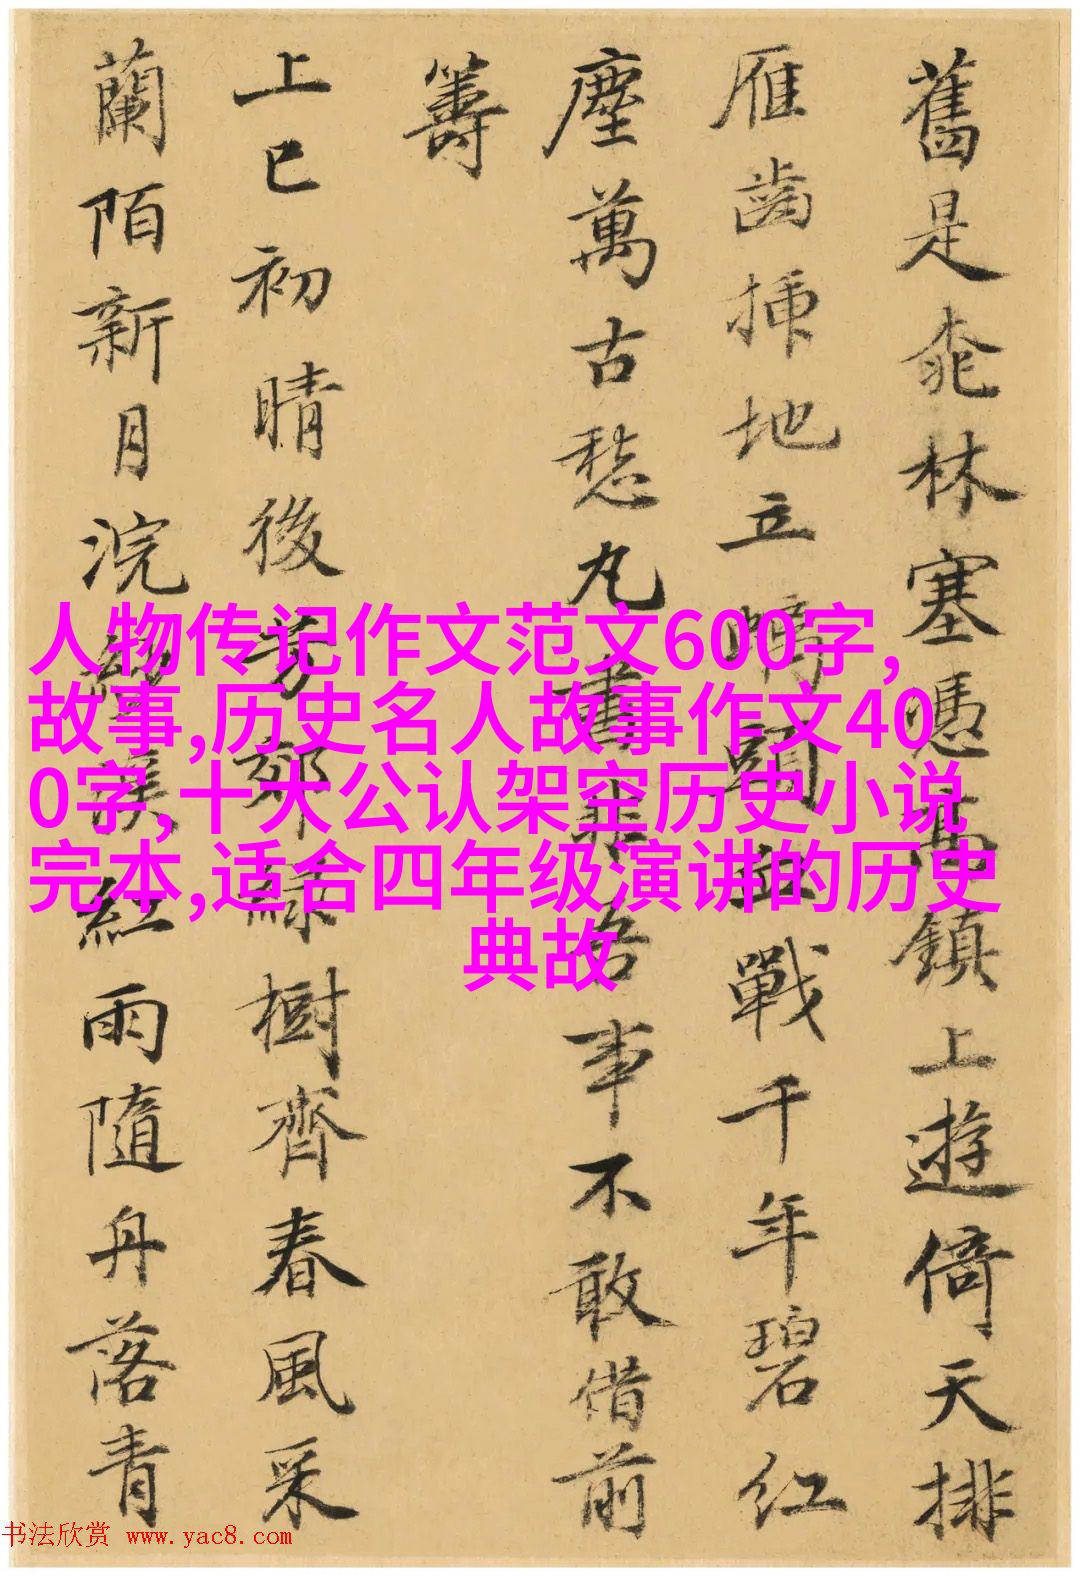 舊是桃林塞憑高鎮上遊倚天排
雁齒插地立螭頭血戰千年碧紅
塵萬古愁丸書非吾事不敢借前
籌
上巳初晴後芳郊綠樹齊春風采
蘭陌新月浣溪紅雨隨舟落青
人物传记作文范文600字,
故事,历史名人故事作文40
0字,十大公认架空历史小说
完本,适合四年级演讲的历史
典故
书法欣赏 www.yac8.com